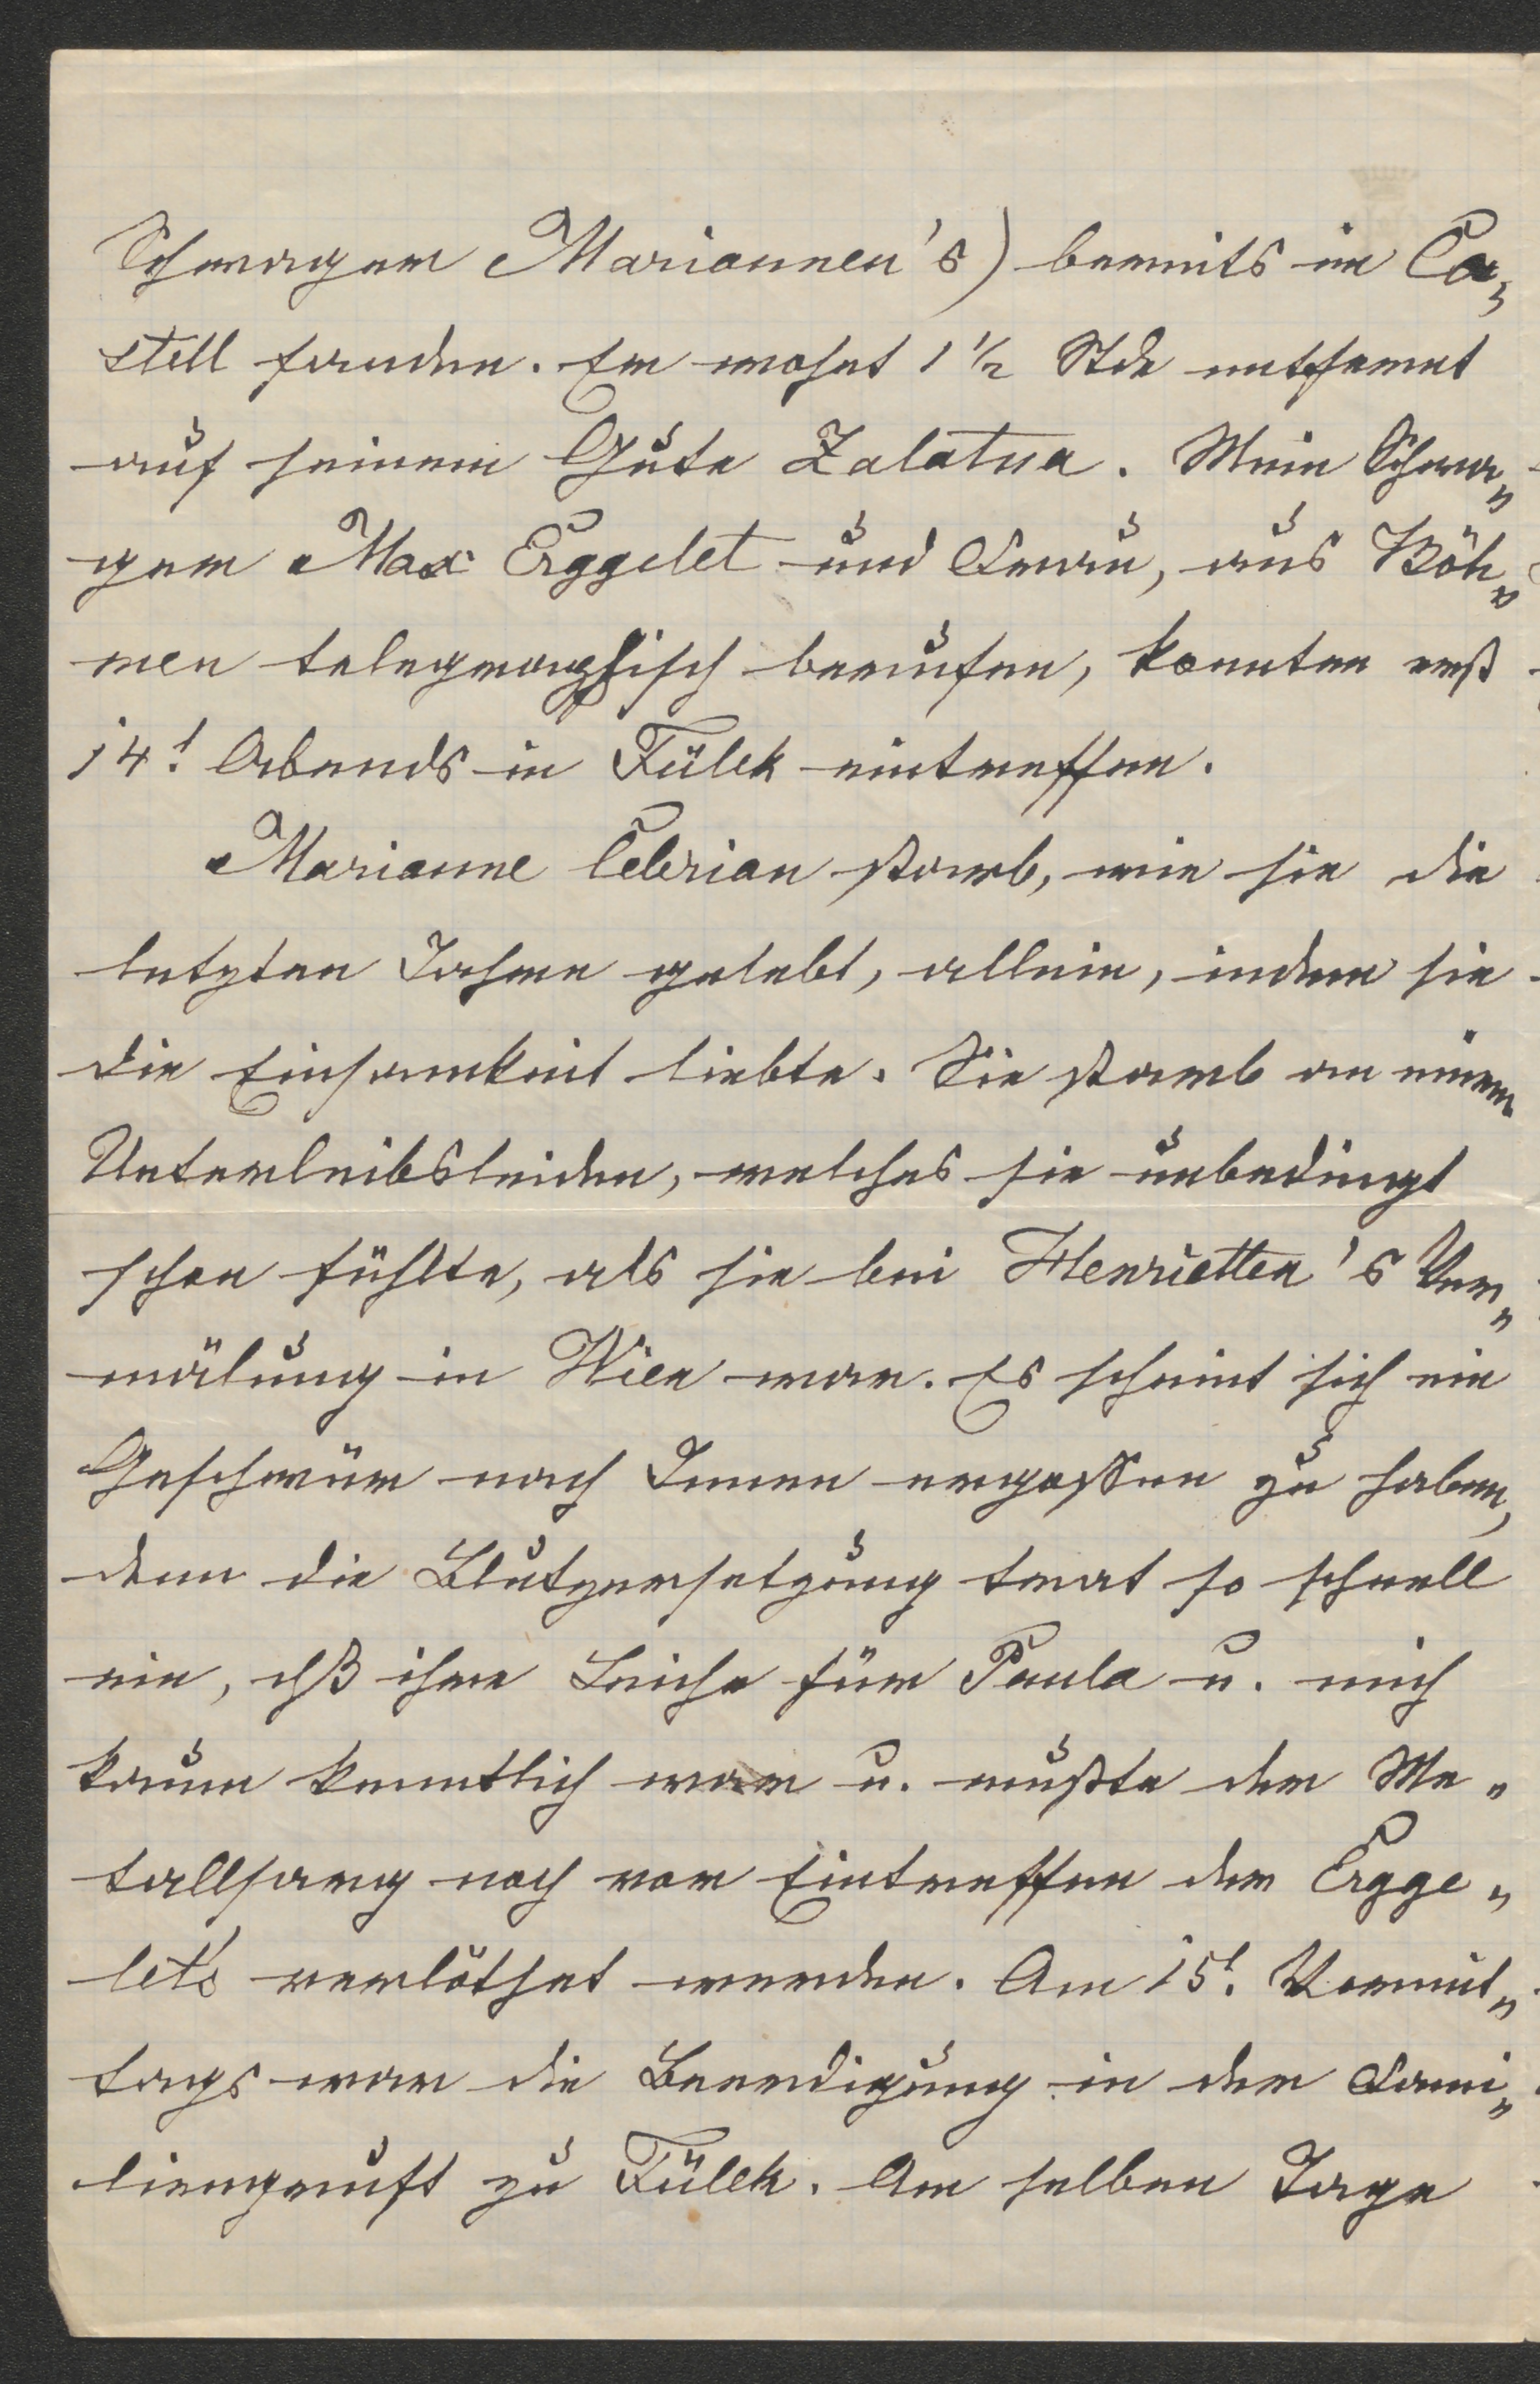 Schwager Mariannen's) bereits im Ca„
stell fanden. Er wohnt 1 ½ Stde entfernt
auf seinem Gute Zalatna. Mein Schwa„
ger Max Erggelet und Frau, aus Böh„
men telegraphisch berufen, konnten erst
14t. Abends in Fülek eintreffen.
Marianne Cebrian starb, wie sie die
letzten Jahre gelebt, allein, indem sie
die Einsamkeit liebte. Sie starb an einem
Unterleibsleiden, welches sie unbedingt
schon fühlte, als sie bei Henrietten's Ver„
mälung in Wien war. Es scheint sich ein
Geschwür nach Innen ergossen zu haben,
denn die Blutzersetzung trat so schnell
ein, dß ihre Leiche für Paula u. mich
kaum kenntlich war u. mußte der Me„
tallsarg noch vor Eintreffen der Ergge„
let's verlöthet werden. Am 15t. Vormit„
tags war die Beerdigung in der Fami„
liengruft zu Fülek. Am selben Tage